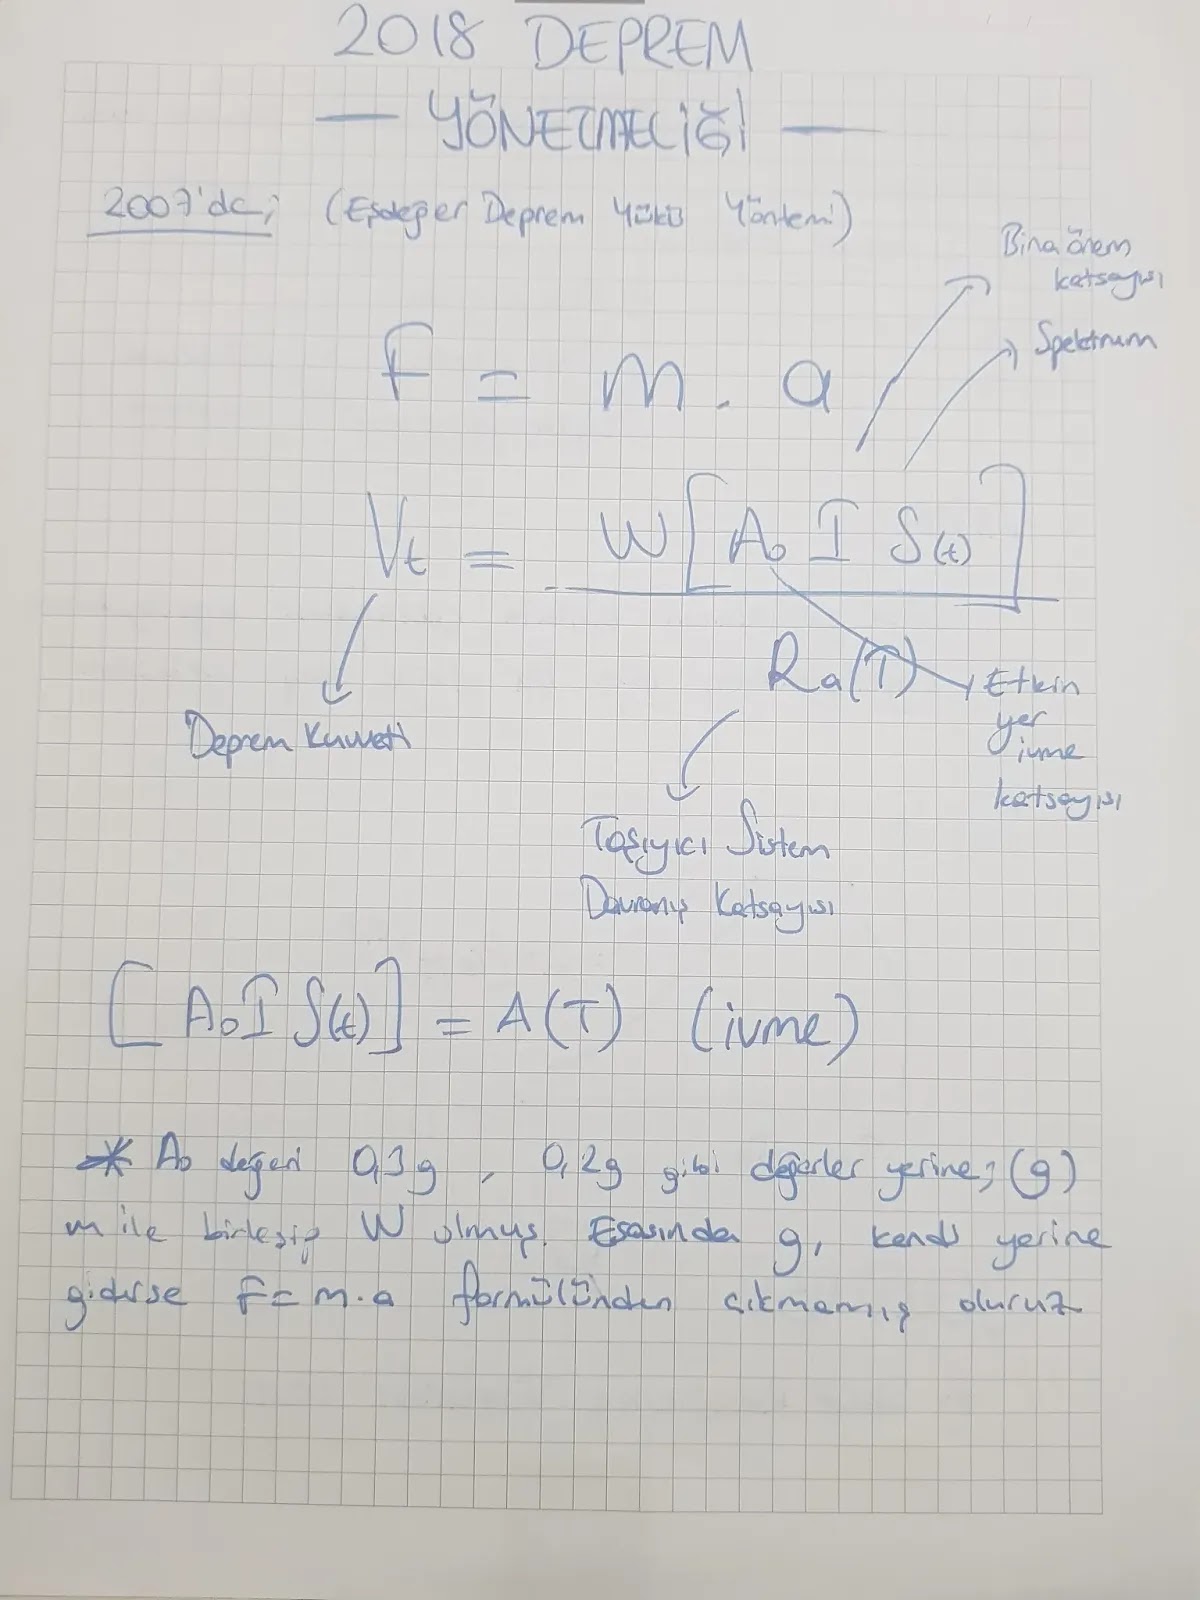 2018 DEPREM
— YÖNETMELİĞİ —
2007'de; (Eşdeğer Deprem Yükü Yöntemi)
Bina önem
katsayısı
Spektrum
F = m . a
Vt = W [ A0 I S(t) ]
Ra(T)
Etkin
yer
ivme
katsayısı
Deprem Kuvveti
Taşıyıcı Sistem
Davranış Katsayısı
[ A0 I S(t) ] = A(T) (ivme)
* A0 değeri 0,3g , 0,2g gibi değerler yerine; (g)
m ile birleşip W olmuş. Esasında g, kendi yerine
giderse F = m.a formülünden çıkmamış oluruz